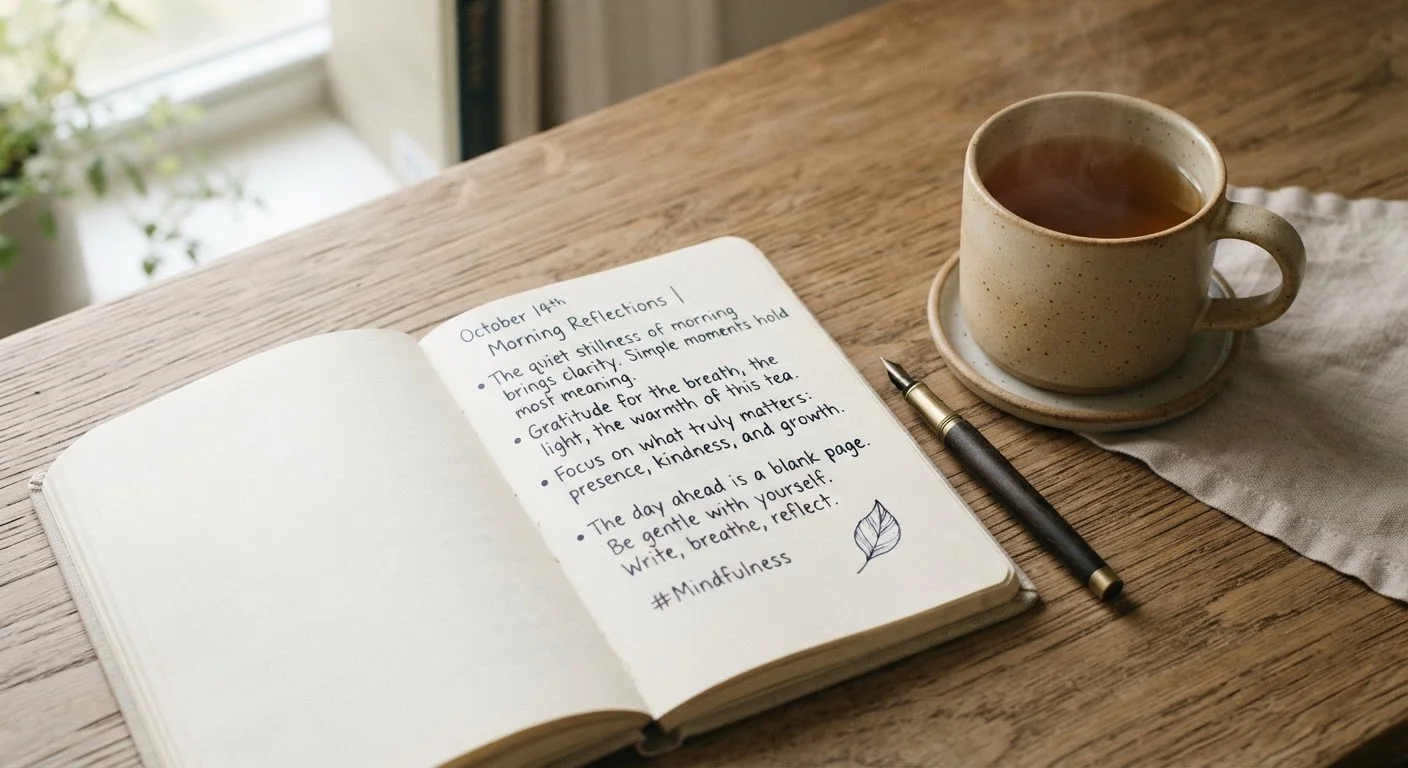 October 14th
Morning Reflections |
• The quiet stillness of morning
brings clarity. Simple moments hold
most meaning.
• Gratitude for the breath, the
light, the warmth of this tea.
• Focus on what truly matters:
presence, kindness, and growth.
• The day ahead is a blank page.
Be gentle with yourself.
Write, breathe, reflect.
#Mindfulness